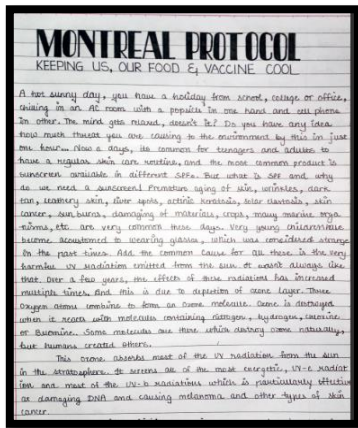 MONTREAL PROTOCOL
KEEPING US, OUR FOOD & VACCINE COOL
A hot sunny day, you have a holiday from school, college or office,
chilling in an AC room with a popsicle in one hand and cell phone
in other. The mind gets relaxed, doesn't it? Do you have any idea
how much threat you are causing to the environment by this in just
one hour... Now a days, its common for teenagers and adults to
have a regular skin care routine, and the most common product is
sunscreen available in different SPFs. But what is SPF and why
do we need a sunscreen? Premature aging of skin, wrinkles, dark
tan, leathery skin, liver spots, actinic keratosis, solar elastosis, skin
cancer, sun burns, damaging of materials, crops, many marine orga
nisms, etc are very common these days. Very young children have
become accustomed to wearing glasses, which was considered strange
in the past times. And the common cause for all these is the very
harmful UV radiation emitted from the sun. It wasn't always like
that. Over a few years, the effects of these radiations has increased
multiple times. And this is due to depletion of ozone layer. Three
oxygen atoms combine to form an ozone molecule. Ozone is destroyed
when it reacts with molecules containing nitrogen, hydrogen, chlorine
or Bromine. Some molecules are there which destroy ozone naturally,
but humans created others.
This ozone absorbs most of the UV radiation from the sun
in the stratosphere. It screens all of the most energetic, UV-c radiat
ion and most of the UV-b radiations which is particularly effective
at damaging DNA and causing melanoma and other types of skin
cancer.